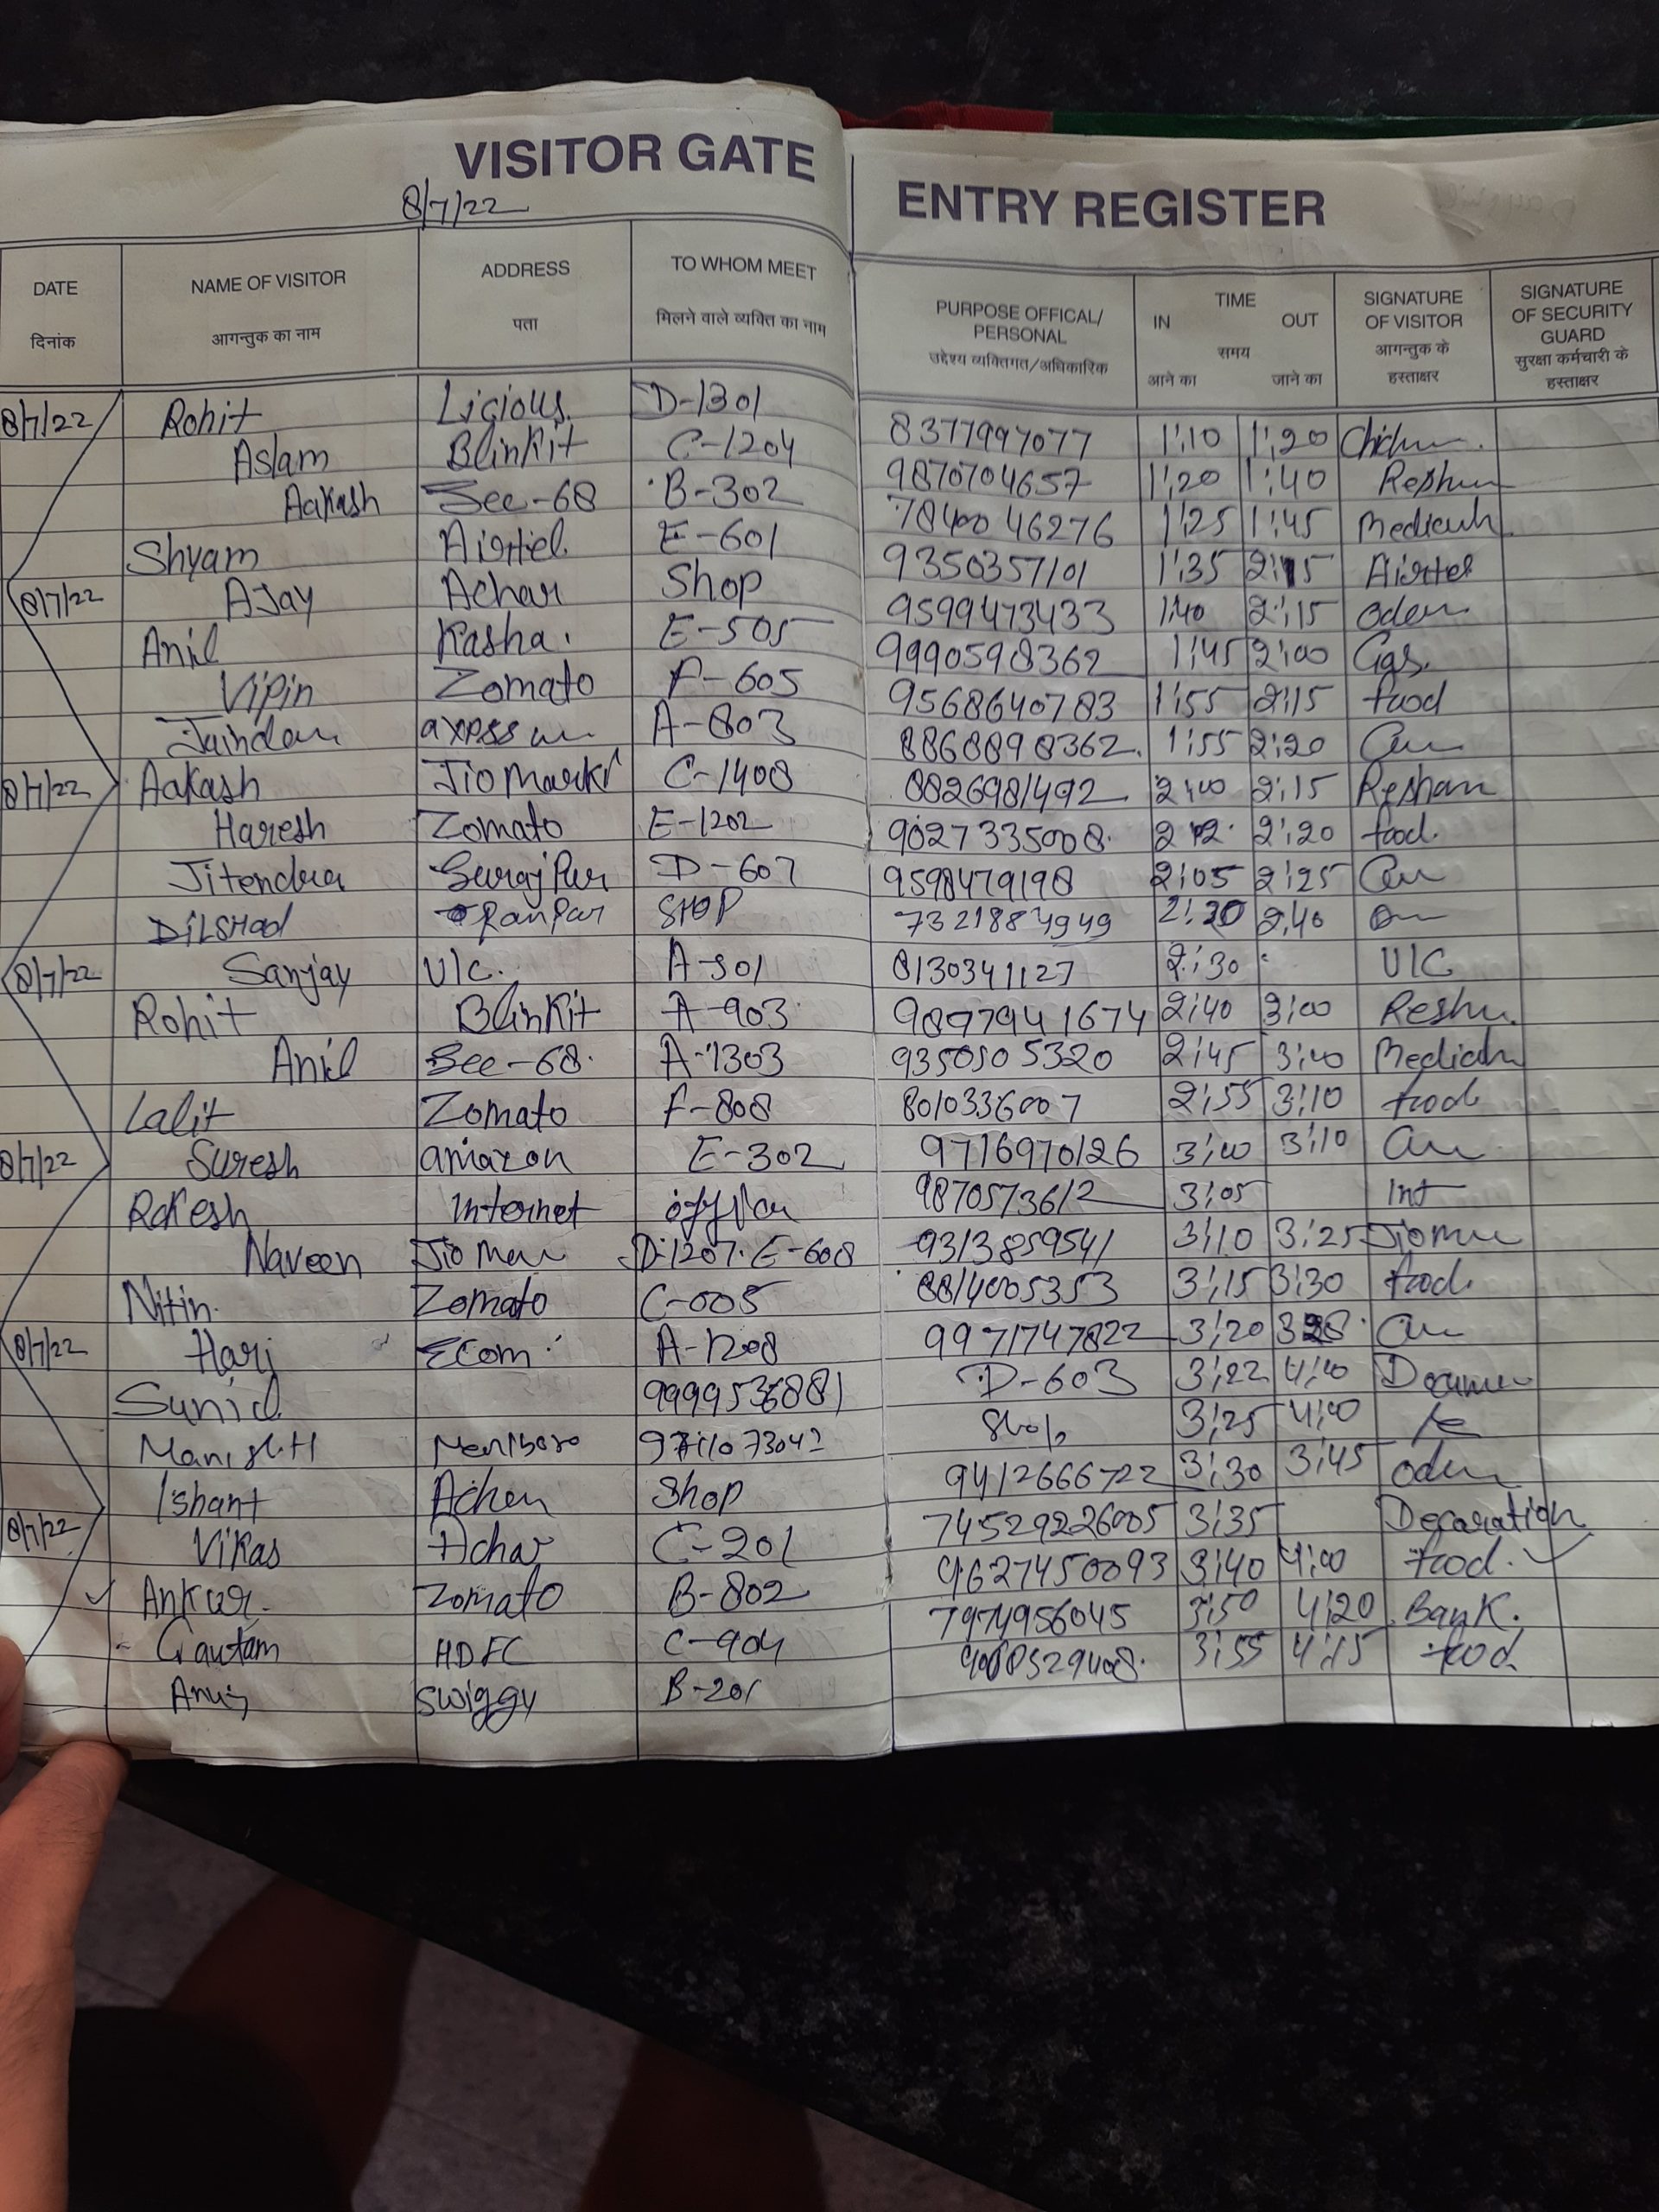 VISITOR GATE ENTRY REGISTER
8/7/22
DATE NAME OF VISITOR ADDRESS TO WHOM MEET PURPOSE OFFICAL/ PERSONAL TIME IN OUT SIGNATURE OF VISITOR SIGNATURE OF SECURITY GUARD
दिनांक आगन्तुक का नाम पता मिलने वाले व्यक्ति का नाम उद्देश्य व्यक्तिगत/अधिकारिक समय आने का जाने का आगन्तुक के हस्ताक्षर सुरक्षा कर्मचारी के हस्ताक्षर
8/7/22 Rohit Licious. D-1301 8377997077 1:10 1:20
Aslam Blinkit C-1204 9870704657 1:20 1:40
Aakash Sec-68 B-302 7840046276 1:25 1:45
Shyam Airtel E-601 9350357101 1:35 2:15 Airtel
8/7/22 Ajay Achar Shop 9599473433 1:40 2:15
Anil Kasha. E-505 9990598362 1:45 2:00 Gas.
Vipin Zomato F-605 9568640783 1:55 2:15 food
A-803 8868898362. 1:55 2:20
8/7/22 Aakash C-1408 8826981492 2:00 2:15
Haresh Zomato E-1202 9027335008. 2:20 food.
Jitendra Surajpur D-607 9598479198 2:05 2:25
DILSHad SHOP 2:40
8/7/22 Sanjay U/c. 8130341127 2:30 U/C
Rohit Blinkit A-903 2:40 3:00
Anil Sec-68. A-1303 9350505320 2:45 3:00
Lalit Zomato F-808 8010336007 2:55 3:10 food
8/7/22 Suresh amazon E-302 9716970126 3:00 3:10
Rakesh Internet 9870573612 3:05 Int
Naveen D-1207. E-608 9313859541 3:10 3:25
Nitin. Zomato C-005 8814005353 3:15 3:30 food.
8/7/22 Hari Ecom. A-1208 9971747822 3:20
Sunil 9999536881 D-603 3:22 4:00
Manish Shop 3:25 4:00
Ishant Shop 9412666722 3:30 3:45
8/7/22 Vikas Achar C-201 74529226005 3:35 Decaration
Ankur. Zomato B-802 9627450093 3:40 4:00 food.
Gautam HDFC C-904 7974956045 3:50 4:20 Bank.
Anuj Swiggy B-201 3:55 4:15 food